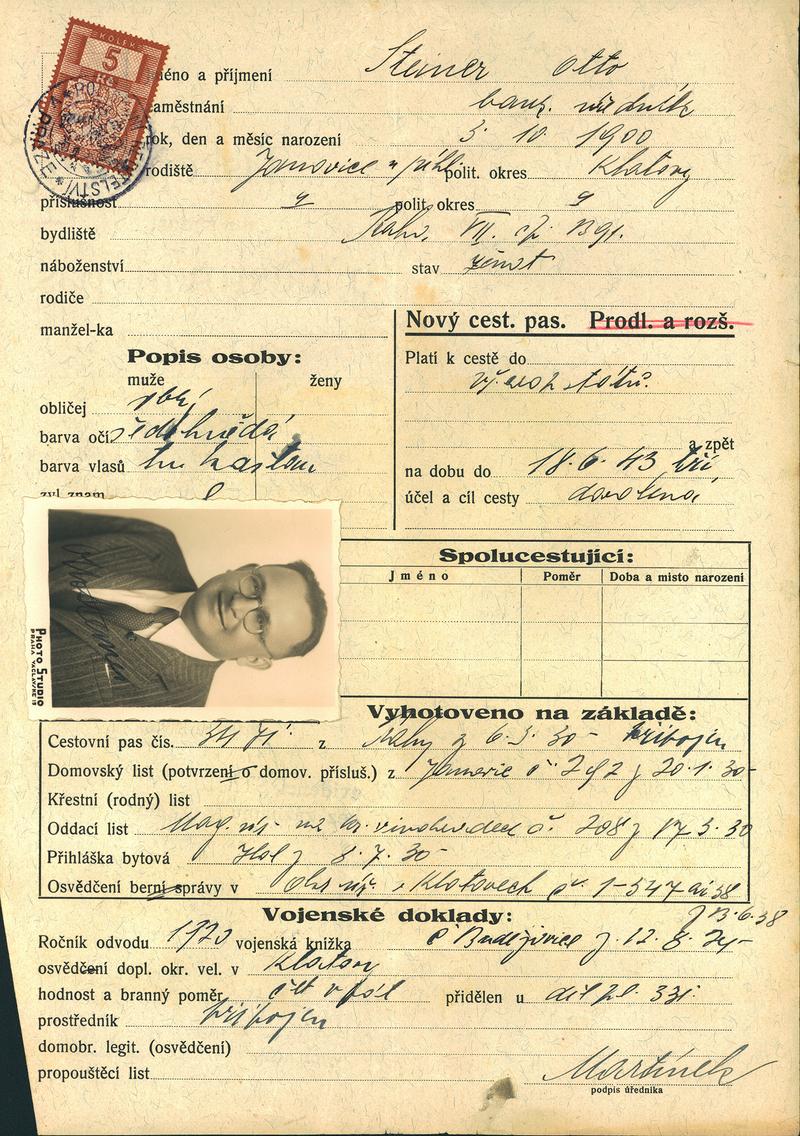 KOLEK
5
Kč
Jméno a příjmení Steiner Otto
zaměstnání bank. úředník
rok, den a měsíc narození 3. 10. 1900
rodiště Janovice n/Úhl. polit. okres Klatovy
příslušnost polit. okres
bydliště Praha VII. čp. 1391.
náboženství stav ženat
rodiče
manžel-ka
Nový cest. pas. Prodl. a rozš.
Popis osoby:
muže ženy
obličej
barva očí šedohnědá
barva vlasů tm kaštan
zvl. znam.
Platí k cestě do
států.
a zpět
na dobu do 18. 6. 43
účel a cíl cesty dovolená
PHOTO STUDIO
PRAHA VÁCLAVSKÉ
Spolucestující:
Jméno Poměr Doba a místo narození
Vyhotoveno na základě:
Cestovní pas čís. z Prahy z 6. 5. 30 připojen
Domovský list (potvrzení o domov. přísluš.) z Janovic č. 292 z 20. 1. 30
Křestní (rodný) list
Oddací list Mag. úř. na kr. vinohradech č. 208 z 17. 3. 30
Přihláška bytová Hol z 8. 7. 30
Osvědčení berní správy v okr. úř. v Klatovech č. 1-547 ai 38
z 13. 6. 38
Vojenské doklady:
Ročník odvodu 1920 vojenská knížka Č Budějovice z 12. 8. 24
osvědčení dopl. okr. vel. v Klatov
hodnost a branný poměr čet v pol přidělen u děl pl. 331.
prostředník připojen
domobr. legit. (osvědčení)
propouštěcí list
Martínek
podpis úředníka